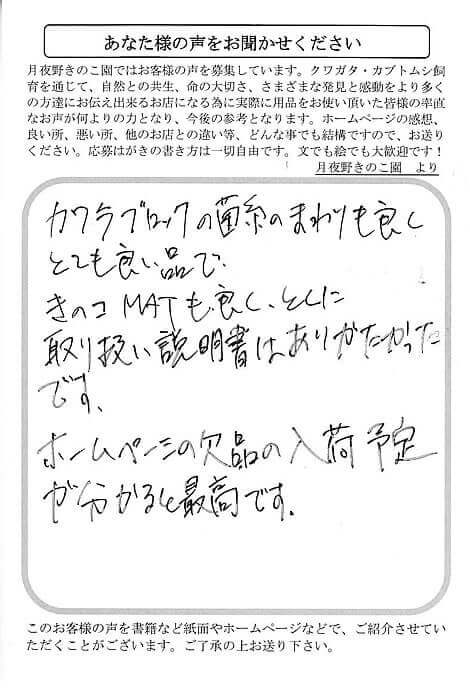 あなた様の声をお聞かせください
月夜野きのこ園ではお客様の声を募集しています。クワガタ・カブトムシ飼
育を通じて、自然との共生、命の大切さ、さまざまな発見と感動をより多く
の方達にお伝え出来るお店になる為に実際に用品をお使い頂いた皆様の率直
なお声が何よりの力となり、今後の参考となります。ホームページの感想、
良い所、悪い所、他のお店との違い等、どんな事でも結構ですので、お送り
ください。応募はがきの書き方は一切自由です。文でも絵でも大歓迎です！
月夜野きのこ園　より
カワラブロックの菌糸のまわりも良く
とても良い品で、
きのコMATも良く、とくに
取り扱い説明書はありがたかった
です。
ホームページの欠品の入荷予定
が分かると最高です。
このお客様の声を書籍など紙面やホームページなどで、ご紹介させてい
ただくことがございます。ご了承の上お送り下さい。